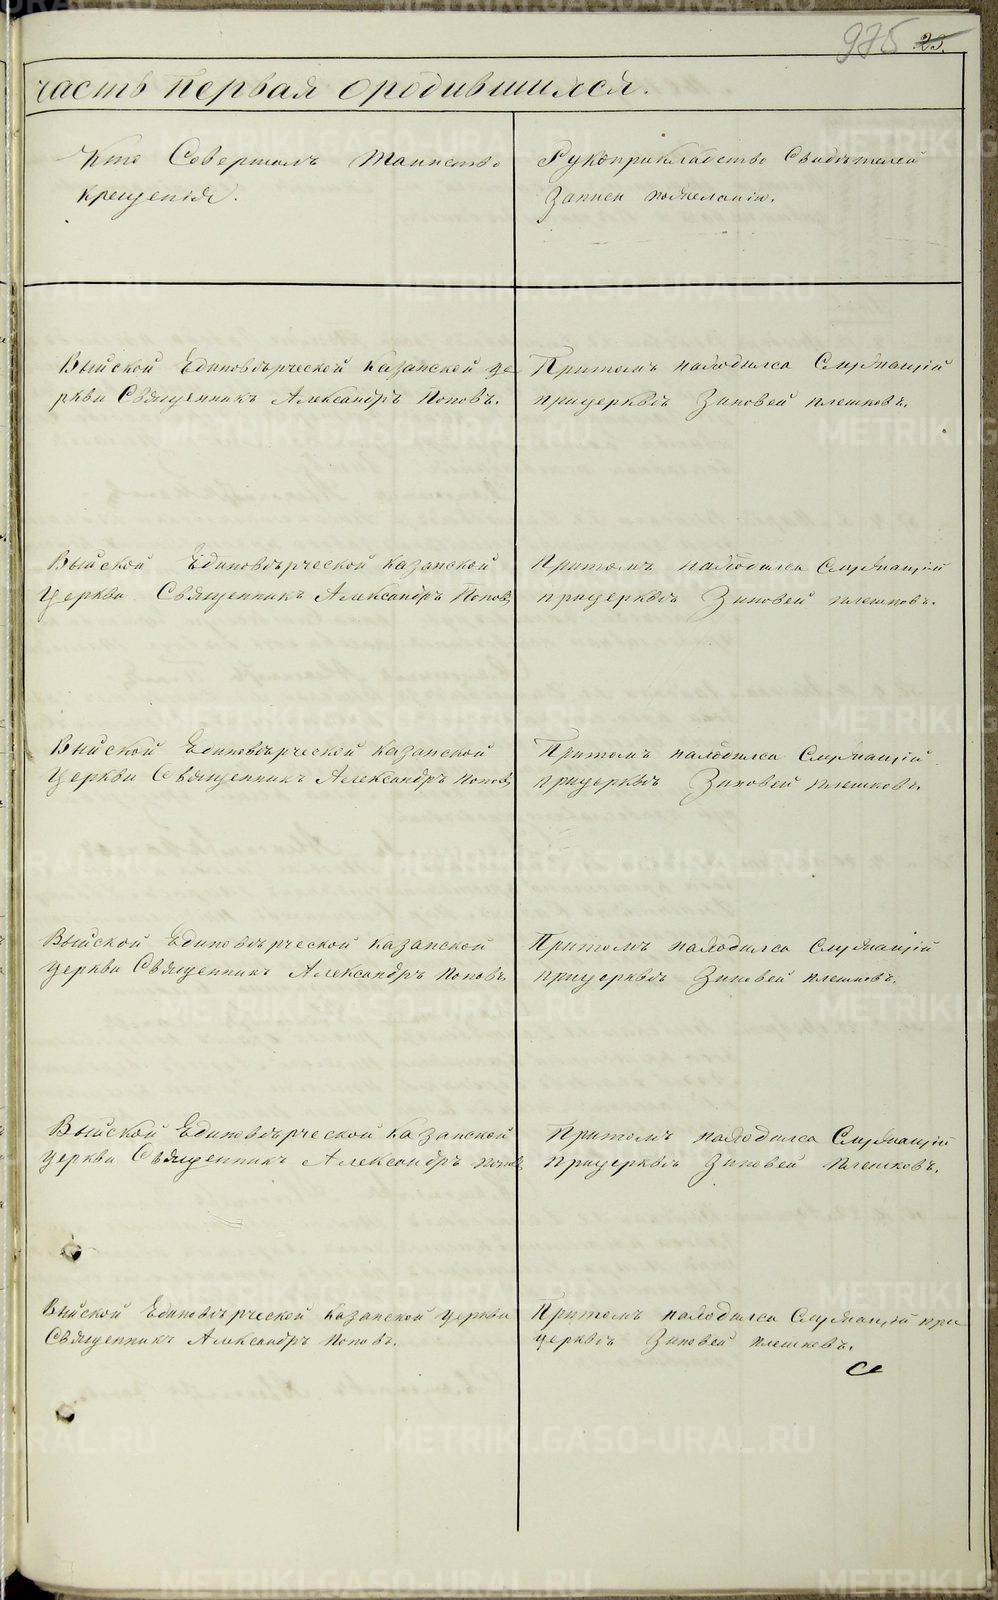 975 23.
часть первая ородившимся.
Кто Совершалъ Таинство
Крещенія.
Рукоприкладство Свидѣтелей
Записи пожеланію.
Выйской Единовѣрческой Казанской це
ркви Священникъ Александръ Поповъ.
Притомъ находился Служащій
прицерквѣ Зиновей Плешковъ.
Выйской Единовѣрческой Казанской
Церкви Священникъ Александръ Поповъ
Притомъ находился Служащій
прицерквѣ Зиновей Плешковъ.
Выйской Единовѣрческой Казанской
Церкви Священникъ Александръ Поповъ
Притомъ находился Служащій
прицерквѣ Зиновей Плешковъ.
Выйской Единовѣрческой Казанской
Церкви Священникъ Александръ Поповъ
Притомъ находился Служащій
прицерквѣ Зиновей Плешковъ.
Выйской Единовѣрческой Казанской
Церкви Священникъ Александръ Поповъ
Притомъ находился Служащій
прицерквѣ Зиновей Плешковъ.
Выйской Единовѣрческой Казанской Церкви
Священникъ Александръ Поповъ.
Притомъ находился Служащій при
церквѣ Зиновей Плешковъ.
METRIKI.GASO-URAL.RU